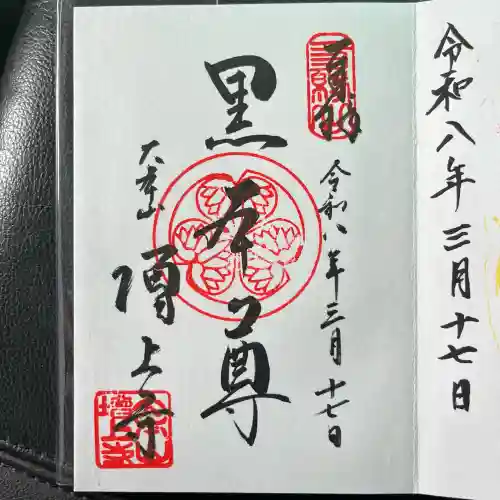 令和八年三月十七日
奉拝
令和八年三月十七日
黒本尊
大本山
増上寺